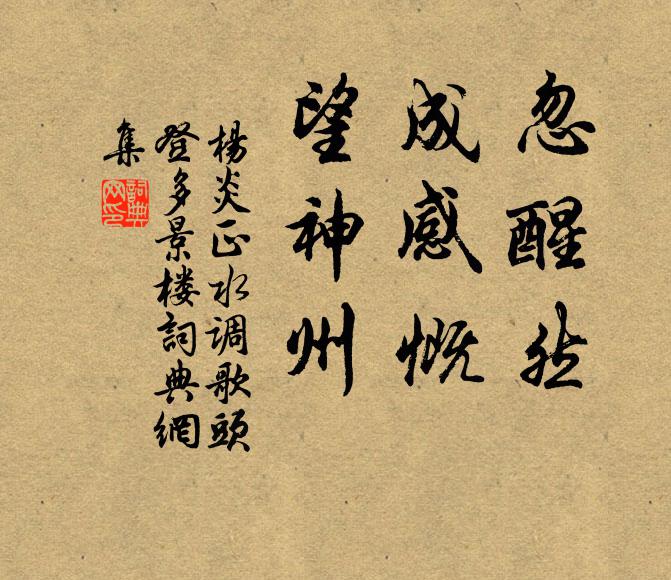 忽醒然
成感慨
望神州
楊炎正水调歌頭
登多景楼詞典網
集
詞典
网印